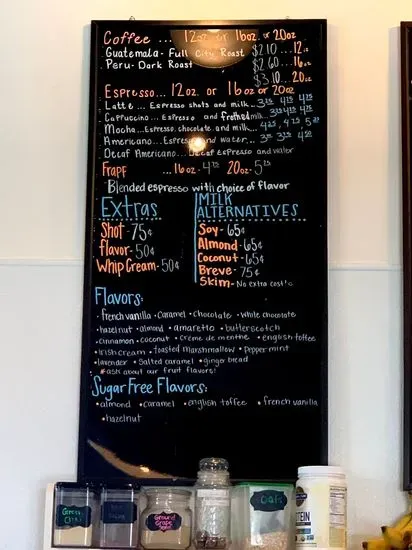 Coffee ... 12oz. or 16oz. or 20oz.
Guatemala - Full City Roast $2.10...12oz
Peru - Dark Roast $2.60...16oz
$3.10...20oz
Espresso... 12oz or 16oz or 20oz
Latte ... Espresso shots and milk..
Cappuccino... Espresso and frothed milk...
Mocha...Espresso, chocolate, and milk....
Americano ... Espresso and water...
Decaf Americano... Decaf espresso and water
Frapf ...16oz - 4.75 20oz - 5.25
Blended espresso with choice of flavor
Extras
Shot - 75¢
flavor - 50¢
Whip Cream - 50¢
MILK
ALTERNATIVES
Soy - 65¢
Almond - 65¢
Coconut - 65¢
Breve - 75¢
Skim - No extra cost!
Flavors:
• french vanilla • caramel • chocolate • white chocolate
• hazelnut • almond • amaretto • butterscotch
• cinnamon • coconut • creme de menthe • english toffee
• irish cream • toasted marshmallow • peppermint
• lavender • salted caramel • ginger bread
# ask about our fruit flavors!
Sugar Free Flavors:
• almond • caramel • english toffee • french vanilla
• hazelnut
Green
Chai
Ground
Grape
Seed
Oats
PROTEIN